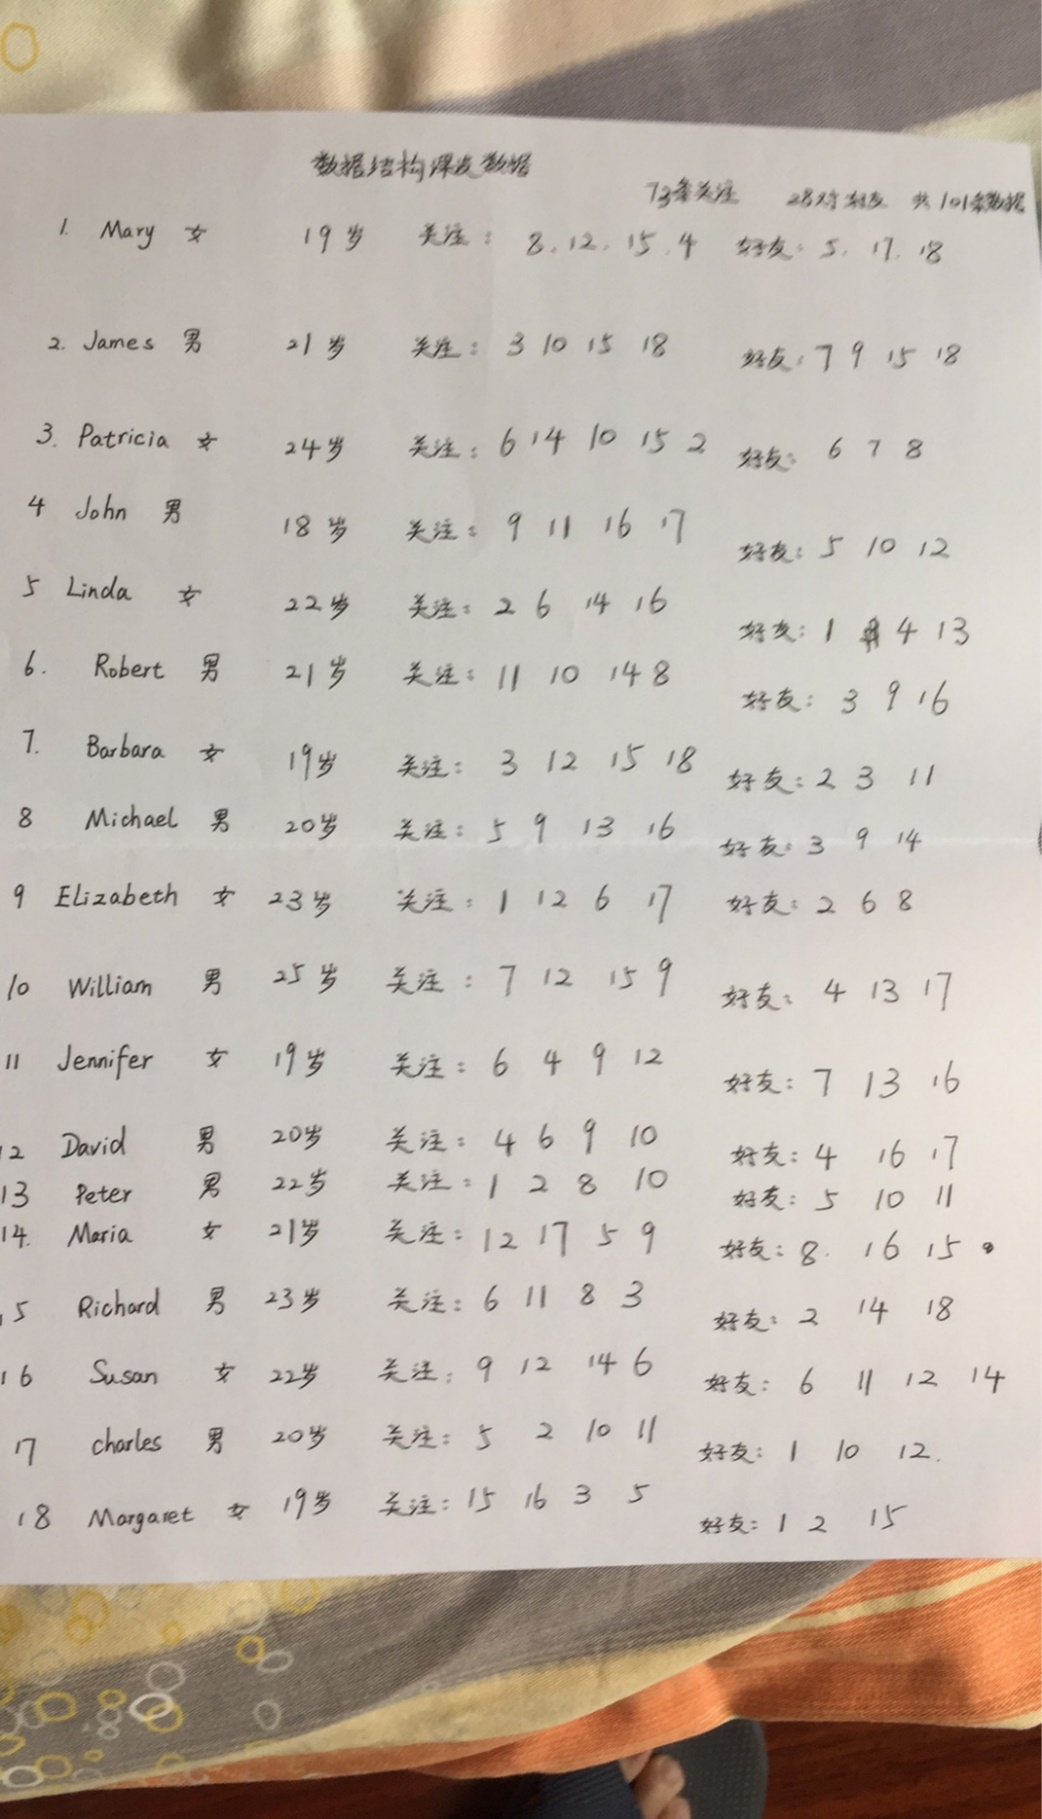 数据结构课设数据
73条关注 28对朋友 共101条数据
1. Mary 女 19岁 关注: 8. 12. 15. 4 好友: 5. 17. 18
2. James 男 21岁 关注: 3 10 15 18 好友: 7 9 15 18
3. Patricia 女 24岁 关注: 6 14 10 15 2 好友: 6 7 8
4 John 男 18岁 关注: 9 11 16 17 好友: 5 10 12
5 Linda 女 22岁 关注: 2 6 14 16 好友: 1 4 13
6. Robert 男 21岁 关注: 11 10 14 8 好友: 3 9 16
7. Barbara 女 19岁 关注: 3 12 15 18 好友: 2 3 11
8 Michael 男 20岁 关注: 5 9 13 16 好友: 3 9 14
9 Elizabeth 女 23岁 关注: 1 12 6 17 好友: 2 6 8
10 William 男 25岁 关注: 7 12 15 9 好友: 4 13 17
11 Jennifer 女 19岁 关注: 6 4 9 12 好友: 7 13 16
12 David 男 20岁 关注: 4 6 9 10 好友: 4 16 17
13 Peter 男 22岁 关注: 1 2 8 10 好友: 5 10 11
14. Maria 女 21岁 关注: 12 17 5 9 好友: 8. 16 15
15 Richard 男 23岁 关注: 6 11 8 3 好友: 2 14 18
16 Susan 女 22岁 关注: 9 12 14 6 好友: 6 11 12 14
17 charles 男 20岁 关注: 5 2 10 11 好友: 1 10 12.
18 Margaret 女 19岁 关注: 15 16 3 5 好友: 1 2 15